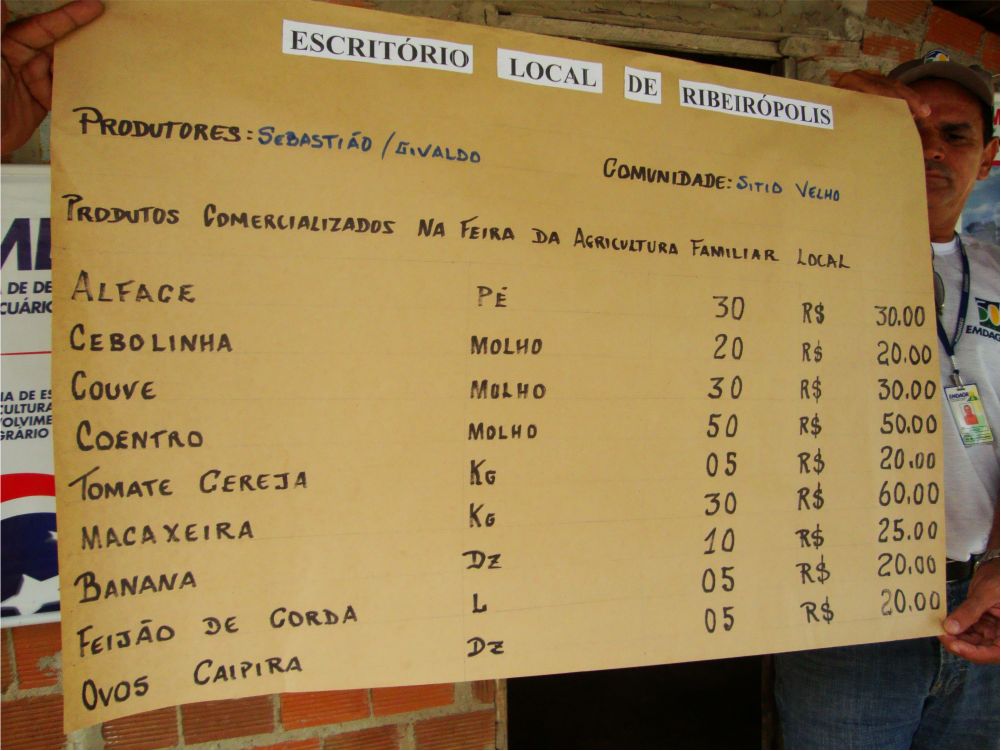 ESCRITÓRIO LOCAL DE RIBEIRÓPOLIS
PRODUTORES: SEBASTIÃO / GIVALDO
COMUNIDADE: SITIO VELHO
PRODUTOS COMERCIALIZADOS NA FEIRA DA AGRICULTURA FAMILIAR LOCAL
ALFACE PÉ 30 R$ 30.00
CEBOLINHA MOLHO 20 R$ 20.00
COUVE MOLHO 30 R$ 30.00
COENTRO MOLHO 50 R$ 50.00
TOMATE CEREJA KG 05 R$ 20.00
MACAXEIRA KG 30 R$ 60.00
BANANA DZ 10 R$ 25.00
FEIJÃO DE CORDA L 05 R$ 20.00
OVOS CAIPIRA DZ 05 R$ 20.00
DE DE
CUÁRIO
IA DE ES
CULTURA
VOLVIME
GRÁRIO
EMDAG